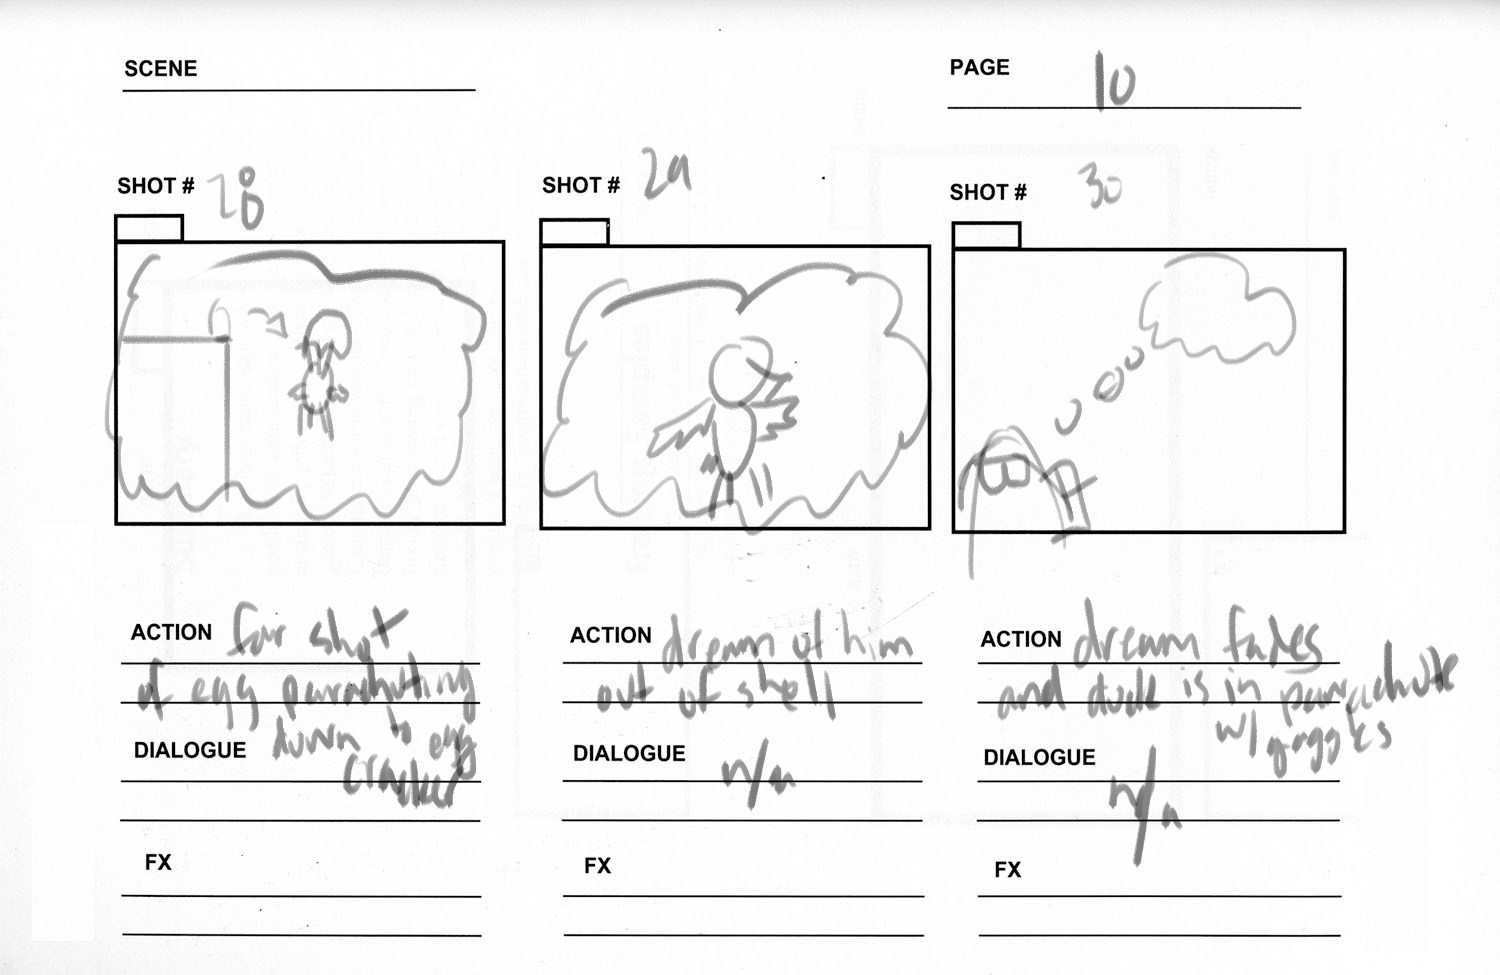 SCENE
PAGE 10
SHOT # 28
SHOT # 29
SHOT # 30
ACTION far shot
of egg parachuting
down to egg
cracker
DIALOGUE
FX
ACTION dream of him
out of shell
DIALOGUE n/a
FX
ACTION dream fades
and dude is in parachute
w/ goggles
DIALOGUE n/a
FX